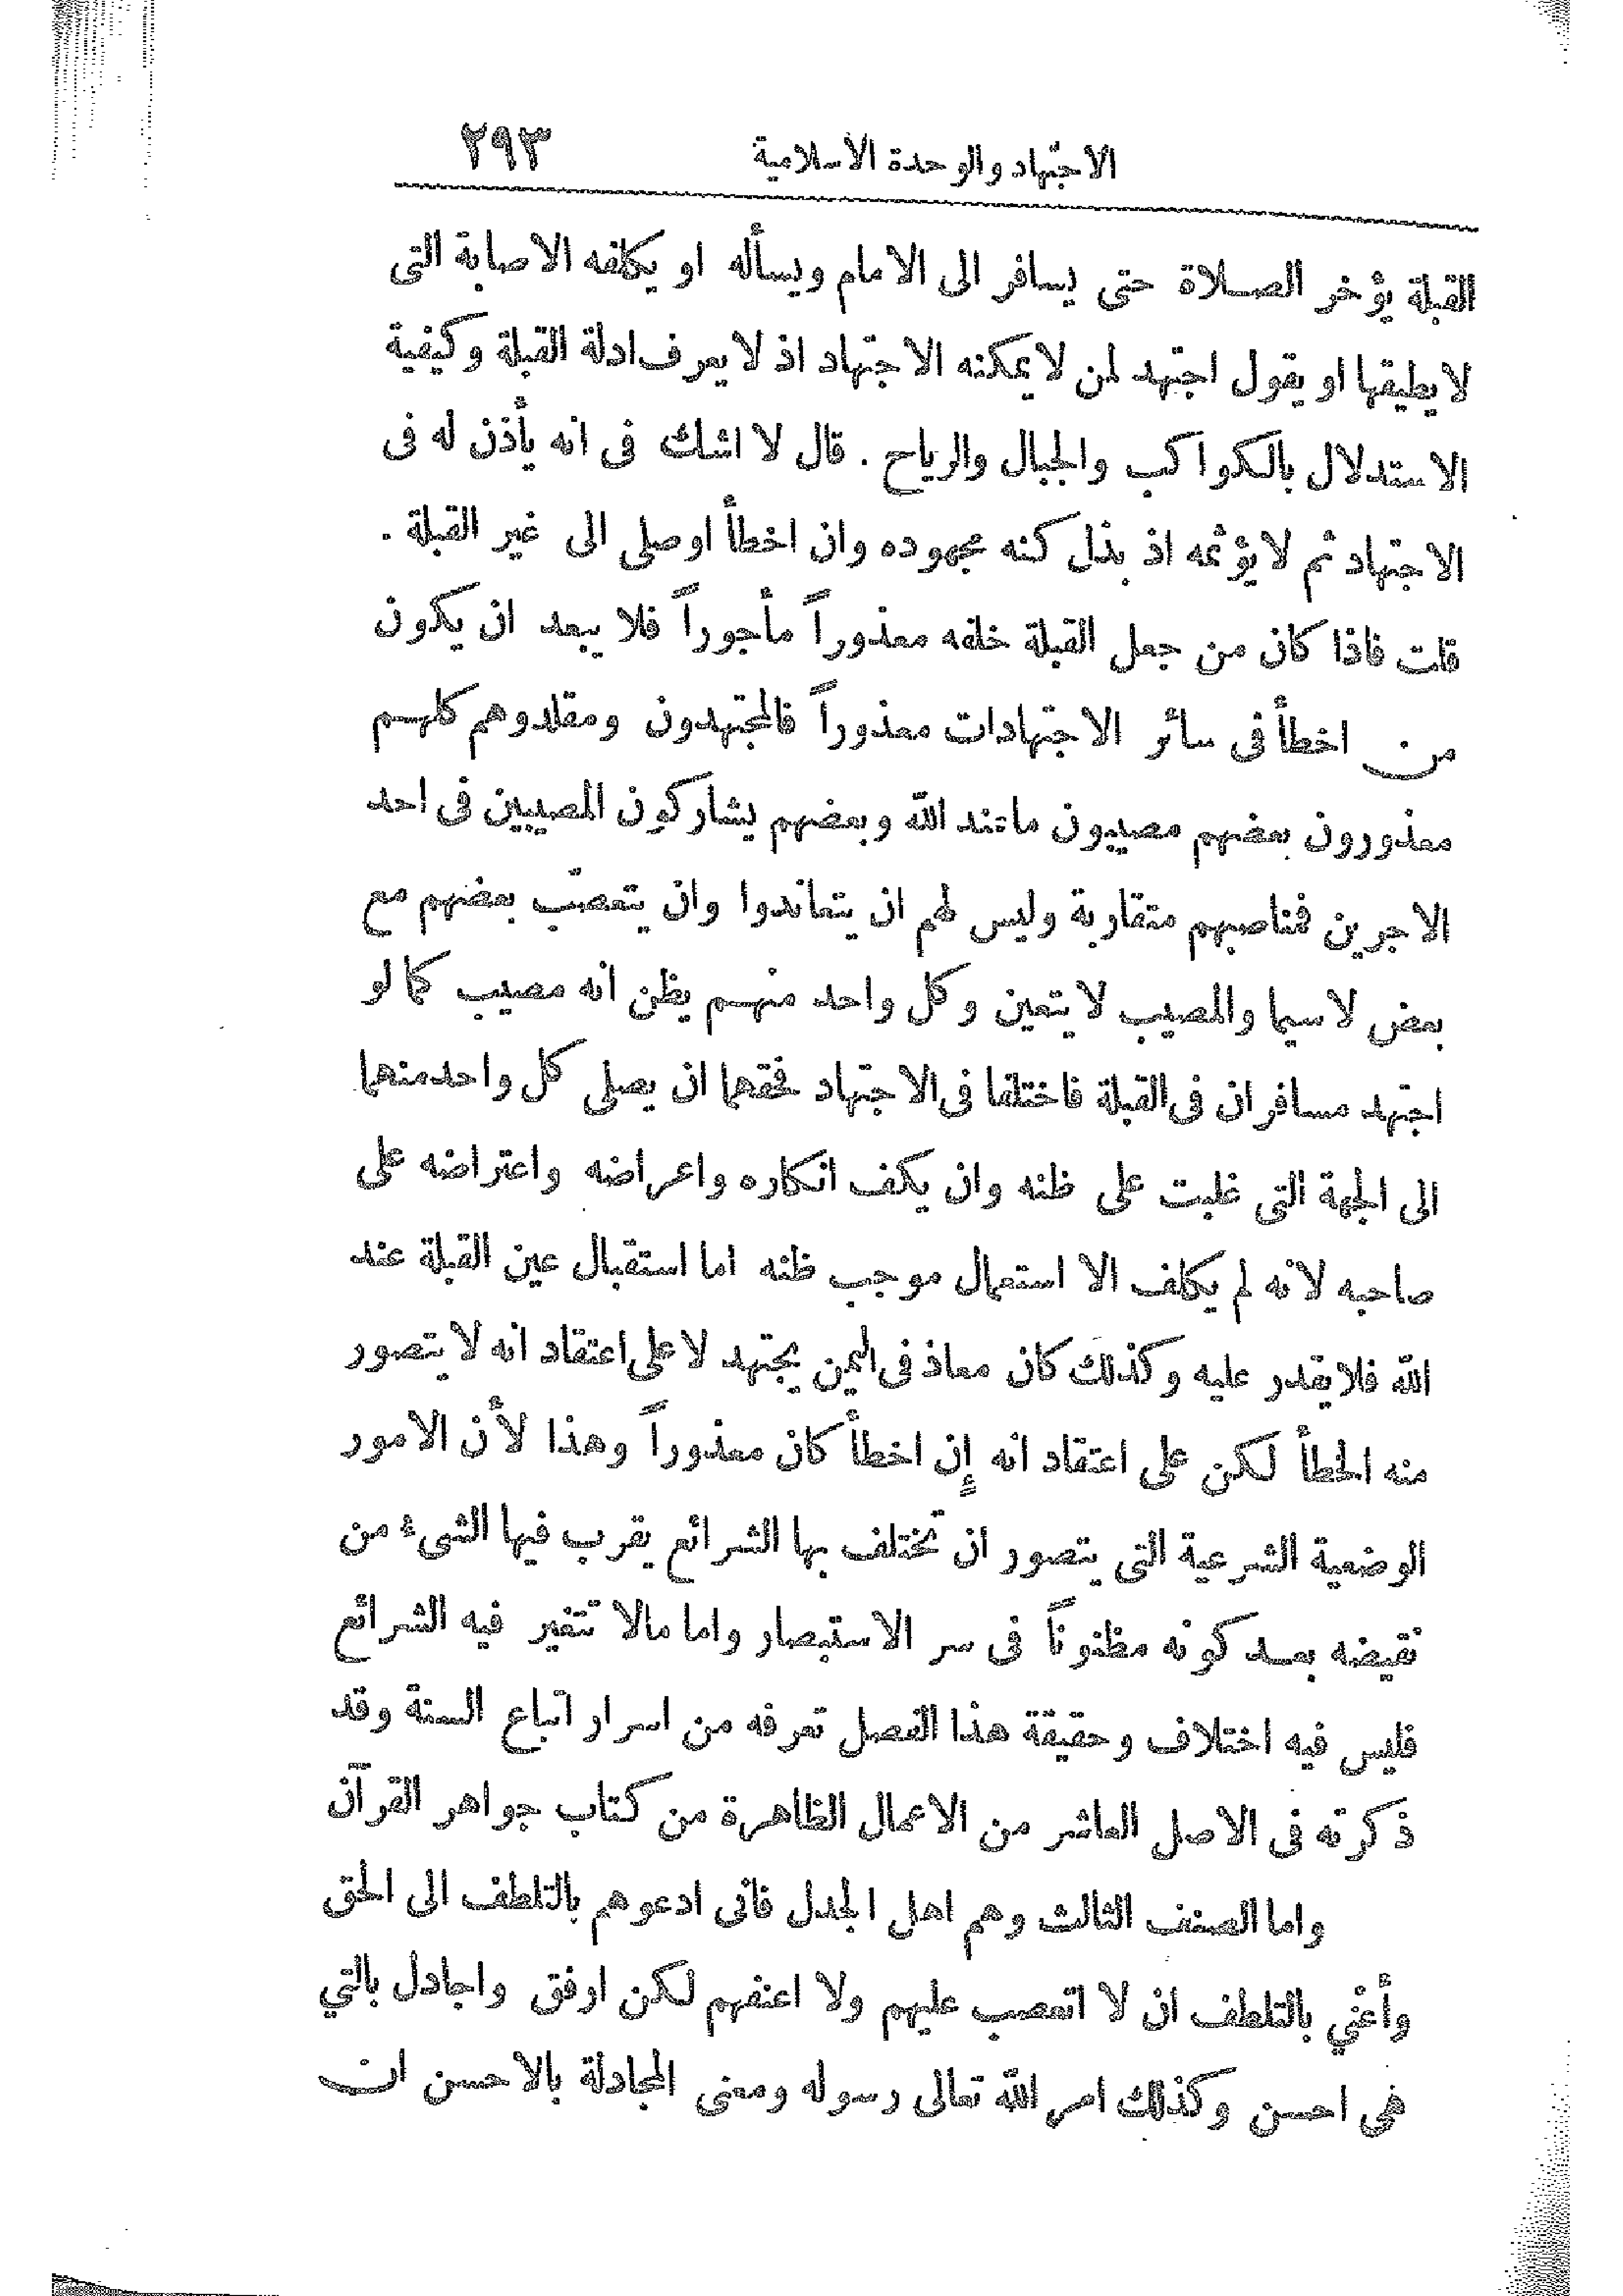 الاجتهاد والوحدة الأسلامية ٢٩٣
القبلة يؤخر الصلاة حتى يسافر الى الامام ويسأله او يكلفه الاصابة التى
لايطيقها او يقول اجتهد لمن لايمكنه الاجتهاد اذ لايعرف ادلة القبلة وكيفية
الاستدلال بالكواكب والجبال والرياح . قال لا اشك فى انه يأذن له فى
الاجتهاد ثم لايؤثمه اذ بذل كنه مجهوده وان اخطأ اوصلى الى غير القبلة .
قلت فاذا كان من جعل القبلة خلفه معذوراً مأجوراً فلا يبعد ان يكون
من اخطأ فى سائر الاجتهادات معذوراً فالمجتهدون ومقلدوهم كلهم
معذورون بعضهم مصيبون ماعند الله وبعضهم يشاركون المصيبين فى احد
الاجرين فمناصبهم متقاربة وليس لهم ان يتعاندوا وان يتعصّب بعضهم مع
بعض لاسيما والمصيب لايتعين وكل واحد منهم يظن انه مصيب كما لو
اجتهد مسافران فى القبلة فاختلفا فى الاجتهاد فحقهما ان يصلى كل واحدمنهما
الى الجهة التى غلبت على ظنه وان يكف انكاره واعراضه واعتراضه على
صاحبه لانه لم يكلف الا استعمال موجب ظنه اما استقبال عين القبلة عند
الله فلايقدر عليه وكذلك كان معاذ فى اليمن يجتهد لاعلى اعتقاد انه لايتصور
منه الخطأ لكن على اعتقاد انه إن اخطأ كان معذوراً وهذا لأن الامور
الوضعية الشرعية التى يتصور ان تختلف بها الشرائع يقرب فيها الشىء من
نقيضه بعد كونه مظنوناً فى سر الاستبصار واما مالا تتغير فيه الشرائع
فليس فيه اختلاف وحقيقة هذا الفصل تعرفه من اسرار اتباع السنة وقد
ذكرته فى الاصل العاشر من الاعمال الظاهرة من كتاب جواهر القرآن
واما الصنف الثالث وهم اهل الجدل فانى ادعوهم بالتلطف الى الحق
وأعني بالتلطف ان لا اتعصب عليهم ولا اعنفهم لكن ارفق واجادل بالتي
هى احسن وكذلك امر الله تعالى رسوله ومعنى المجادلة بالاحسن ان